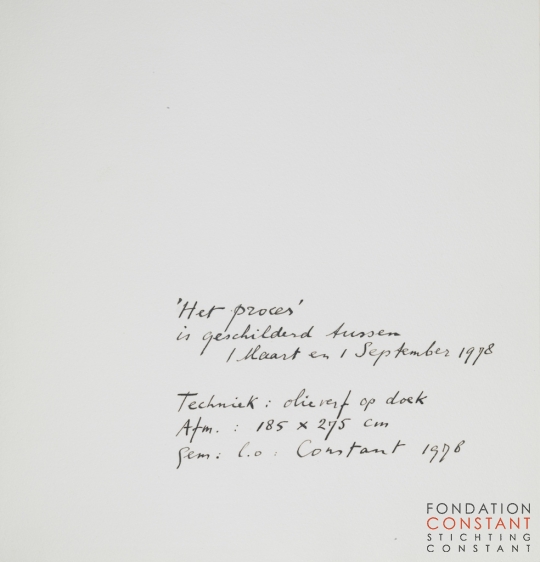 'Het proces'
is geschilderd tussen
1 Maart en 1 September 1978

Techniek : olieverf op doek
Afm. : 185 x 275 cm
gem : l.o : Constant 1978

FONDATION
CONSTANT
STICHTING
CONSTANT